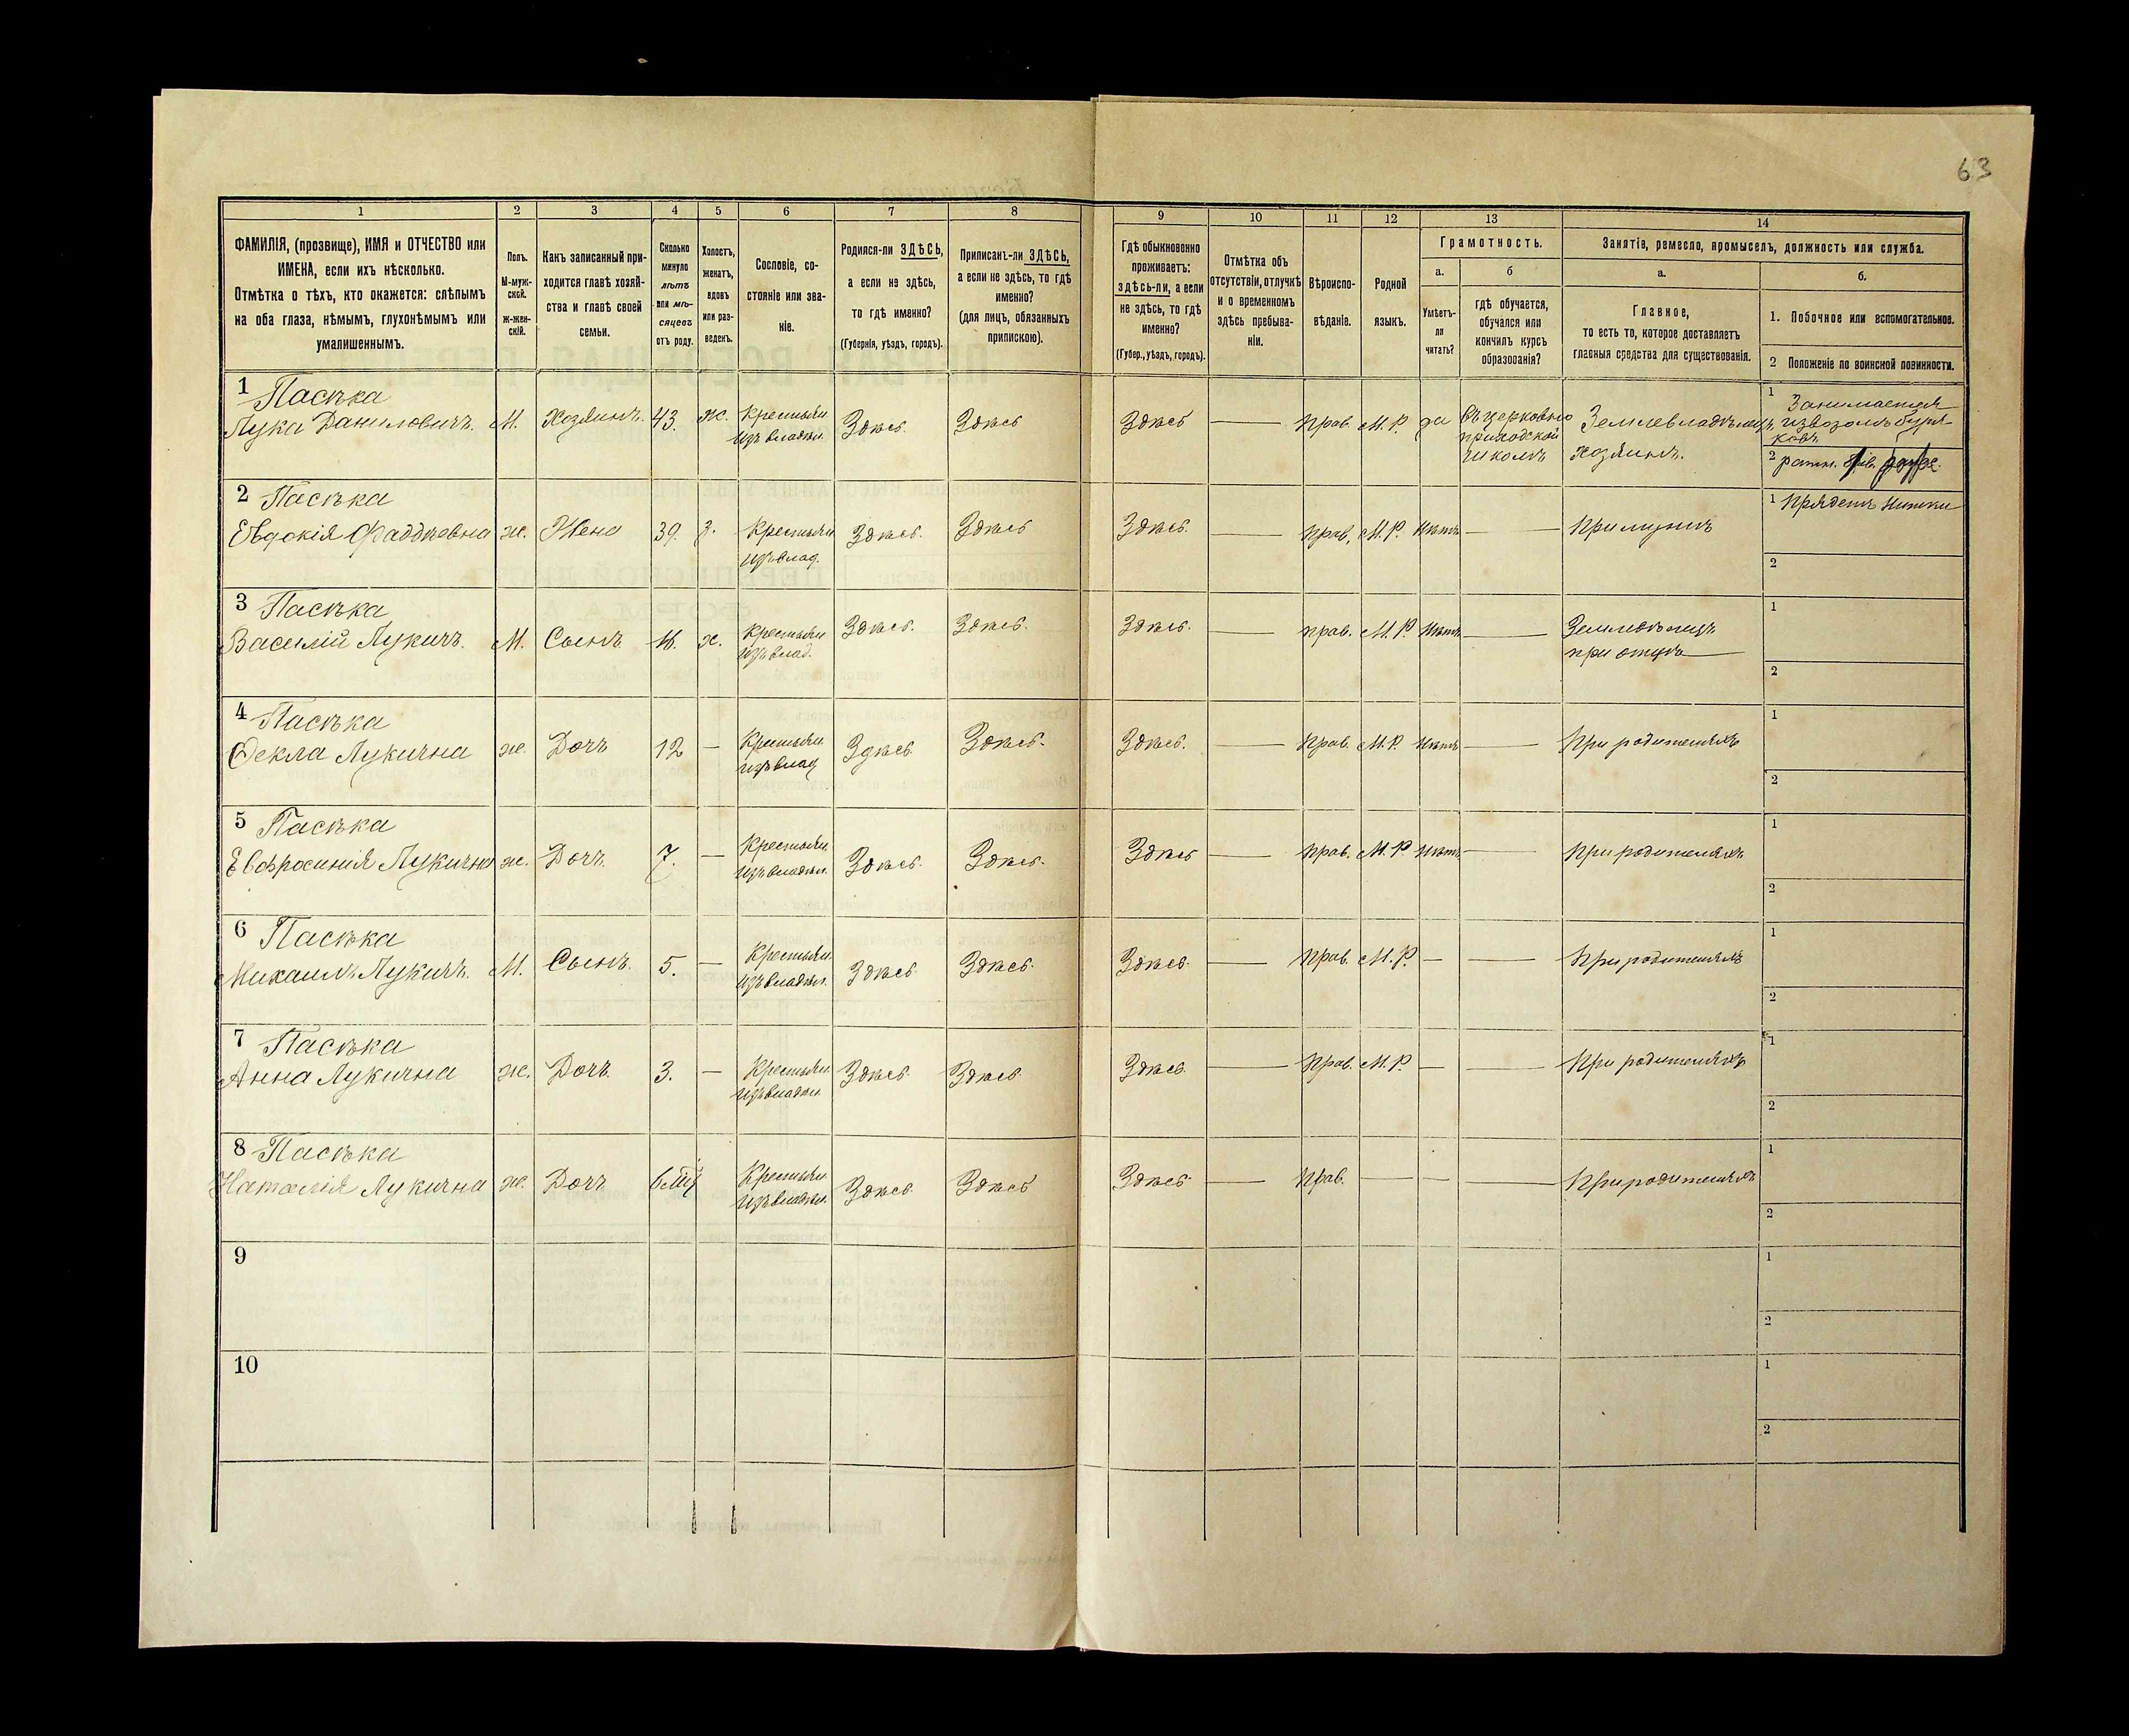 63
1 2 3 4 5 6 7 8 9 10 11 12 13 14
ФАМИЛІЯ, (прозвище), ИМЯ и ОТЧЕСТВО или
ИМЕНА, если ихъ нѣсколько.
Отмѣтка о тѣхъ, кто окажется: слѣпымъ
на оба глаза, нѣмымъ, глухонѣмымъ или
умалишеннымъ.
Полъ.
М-муж-
ской.
Ж-жен-
скій.
Какъ записанный при-
ходится главѣ хозяй-
ства и главѣ своей
семьи.
Сколько
минуло
лѣтъ
или мѣ-
сяцевъ
отъ роду.
Холостъ,
женатъ,
вдовъ
или раз-
веденъ.
Сословіе, со-
стояніе или зва-
ніе.
Родился-ли ЗДѢСЬ,
а если не здѣсь,
то гдѣ именно?
(Губернія, уѣздъ, городъ).
Приписанъ-ли ЗДѢСЬ,
а если не здѣсь, то гдѣ
именно?
(для лицъ, обязанныхъ
припискою).
Гдѣ обыкновенно
проживаетъ:
здѣсь-ли, а если
не здѣсь, то гдѣ
именно?
(Губер., уѣздъ, городъ).
Отмѣтка объ
отсутствіи, отлучкѣ
и о временномъ
здѣсь пребыва-
ніи.
Вѣроиспо-
вѣданіе.
Родной
языкъ.
Грамотность.
а.
Умѣетъ-
ли
читать?
б
гдѣ обучается,
обучался или
кончилъ курсъ
образованія?
Занятіе, ремесло, промыселъ, должность или служба.
а.
Главное,
то есть то, которое доставляетъ
главныя средства для существованія.
б.
1. Побочное или вспомогательное.
2 Положеніе по воинской повинности.
1 Пасѣка
Лука Даниловичъ. М. Хозяинъ. 43. ж. Крестьян. изъ владѣл. Здѣсь. Здѣсь Здѣсь — Прав. М. Р. да Въ церковно приходской школѣ Землевладѣлецъ хозяинъ.
1 Занимается
извозомъ буря-
ковъ
2 ратн.
2 Пасѣка
Евдокія Фаддѣевна ж. Жена 39. З. Крестьян изъ влад. Здѣсь. Здѣсь Здѣсь. — Прав. М. Р. Нѣтъ — При мужѣ
1 Прядетъ нитки
2
3 Пасѣка
Василій Лукичъ. М. Сынъ х. Крестьян изъ влад. Здѣсь. Здѣсь. Здѣсь. — прав. М. Р. Нѣтъ — при отцѣ —
1
2
4 Пасѣка
Ѳекла Лукична ж. Дочь 12 — Крестьян изъ влад Здѣсь Здѣсь. Здѣсь. — Прав. М. Р. Нѣтъ — При родителяхъ
1
2
5 Пасѣка
Евфросинія Лукична ж. Дочь. 7. — Крестьян. изъ владѣл. Здѣсь. Здѣсь. Здѣсь — Прав. М. Р. Нѣтъ — При родителяхъ
1
2
6 Пасѣка
Михаилъ Лукичъ. М. Сынъ. 5. — Крестьян. изъ владѣл. Здѣсь Здѣсь. Здѣсь. — Прав. М. Р. — — При родителяхъ
1
2
7 Пасѣка
Анна Лукична ж. Дочь. 3. — Крестьян. изъ владѣл. Здѣсь. Здѣсь Здѣсь. — Прав. М. Р. — — При родителяхъ
1
2
8 Пасѣка
Наталія Лукична ж. Дочь Крестьян. изъ владѣл. Здѣсь. Здѣсь Здѣсь. — Прав. — — — При родителяхъ
1
2
9
1
2
10
1
2